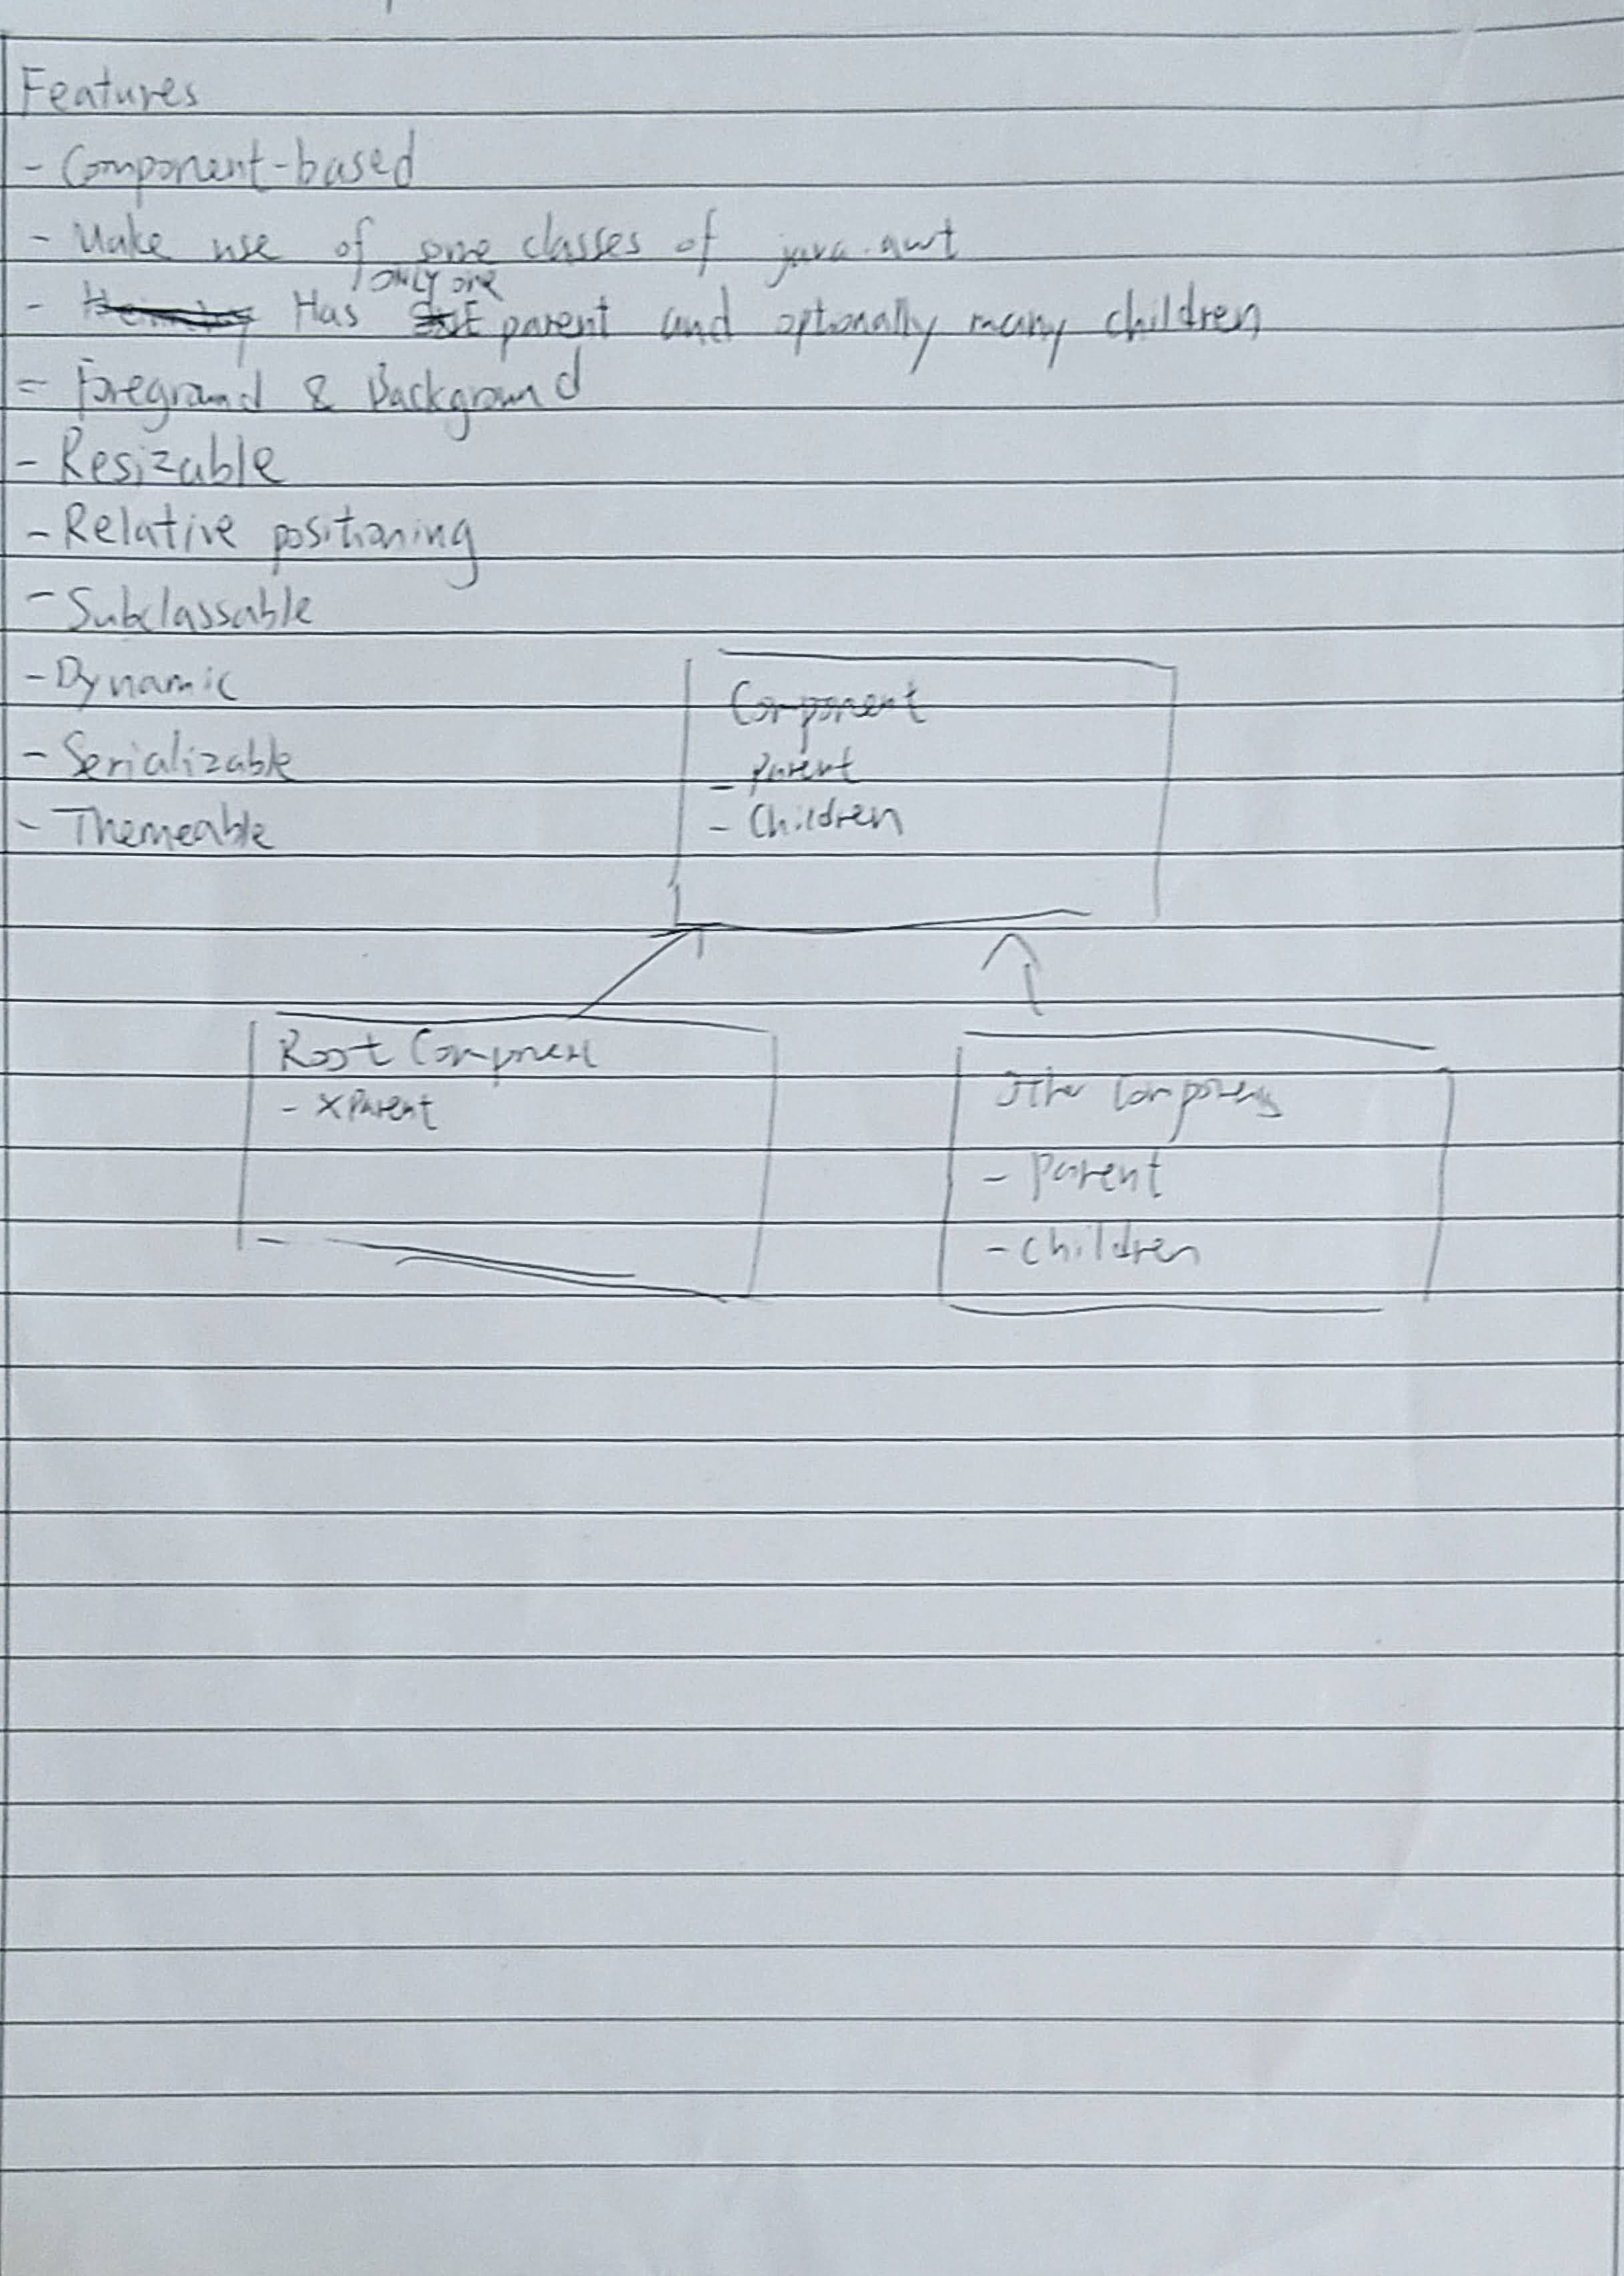 Features
- Component-based
- Make use of some classes of java.awt
- Has only one parent and optionally many children
- Foreground & Background
- Resizable
- Relative positioning
- Subclassable
- Dynamic
- Serializable
- Themeable
Component
- Parent
- Children
Root Component
- X Parent
Other Components
- Parent
- Children